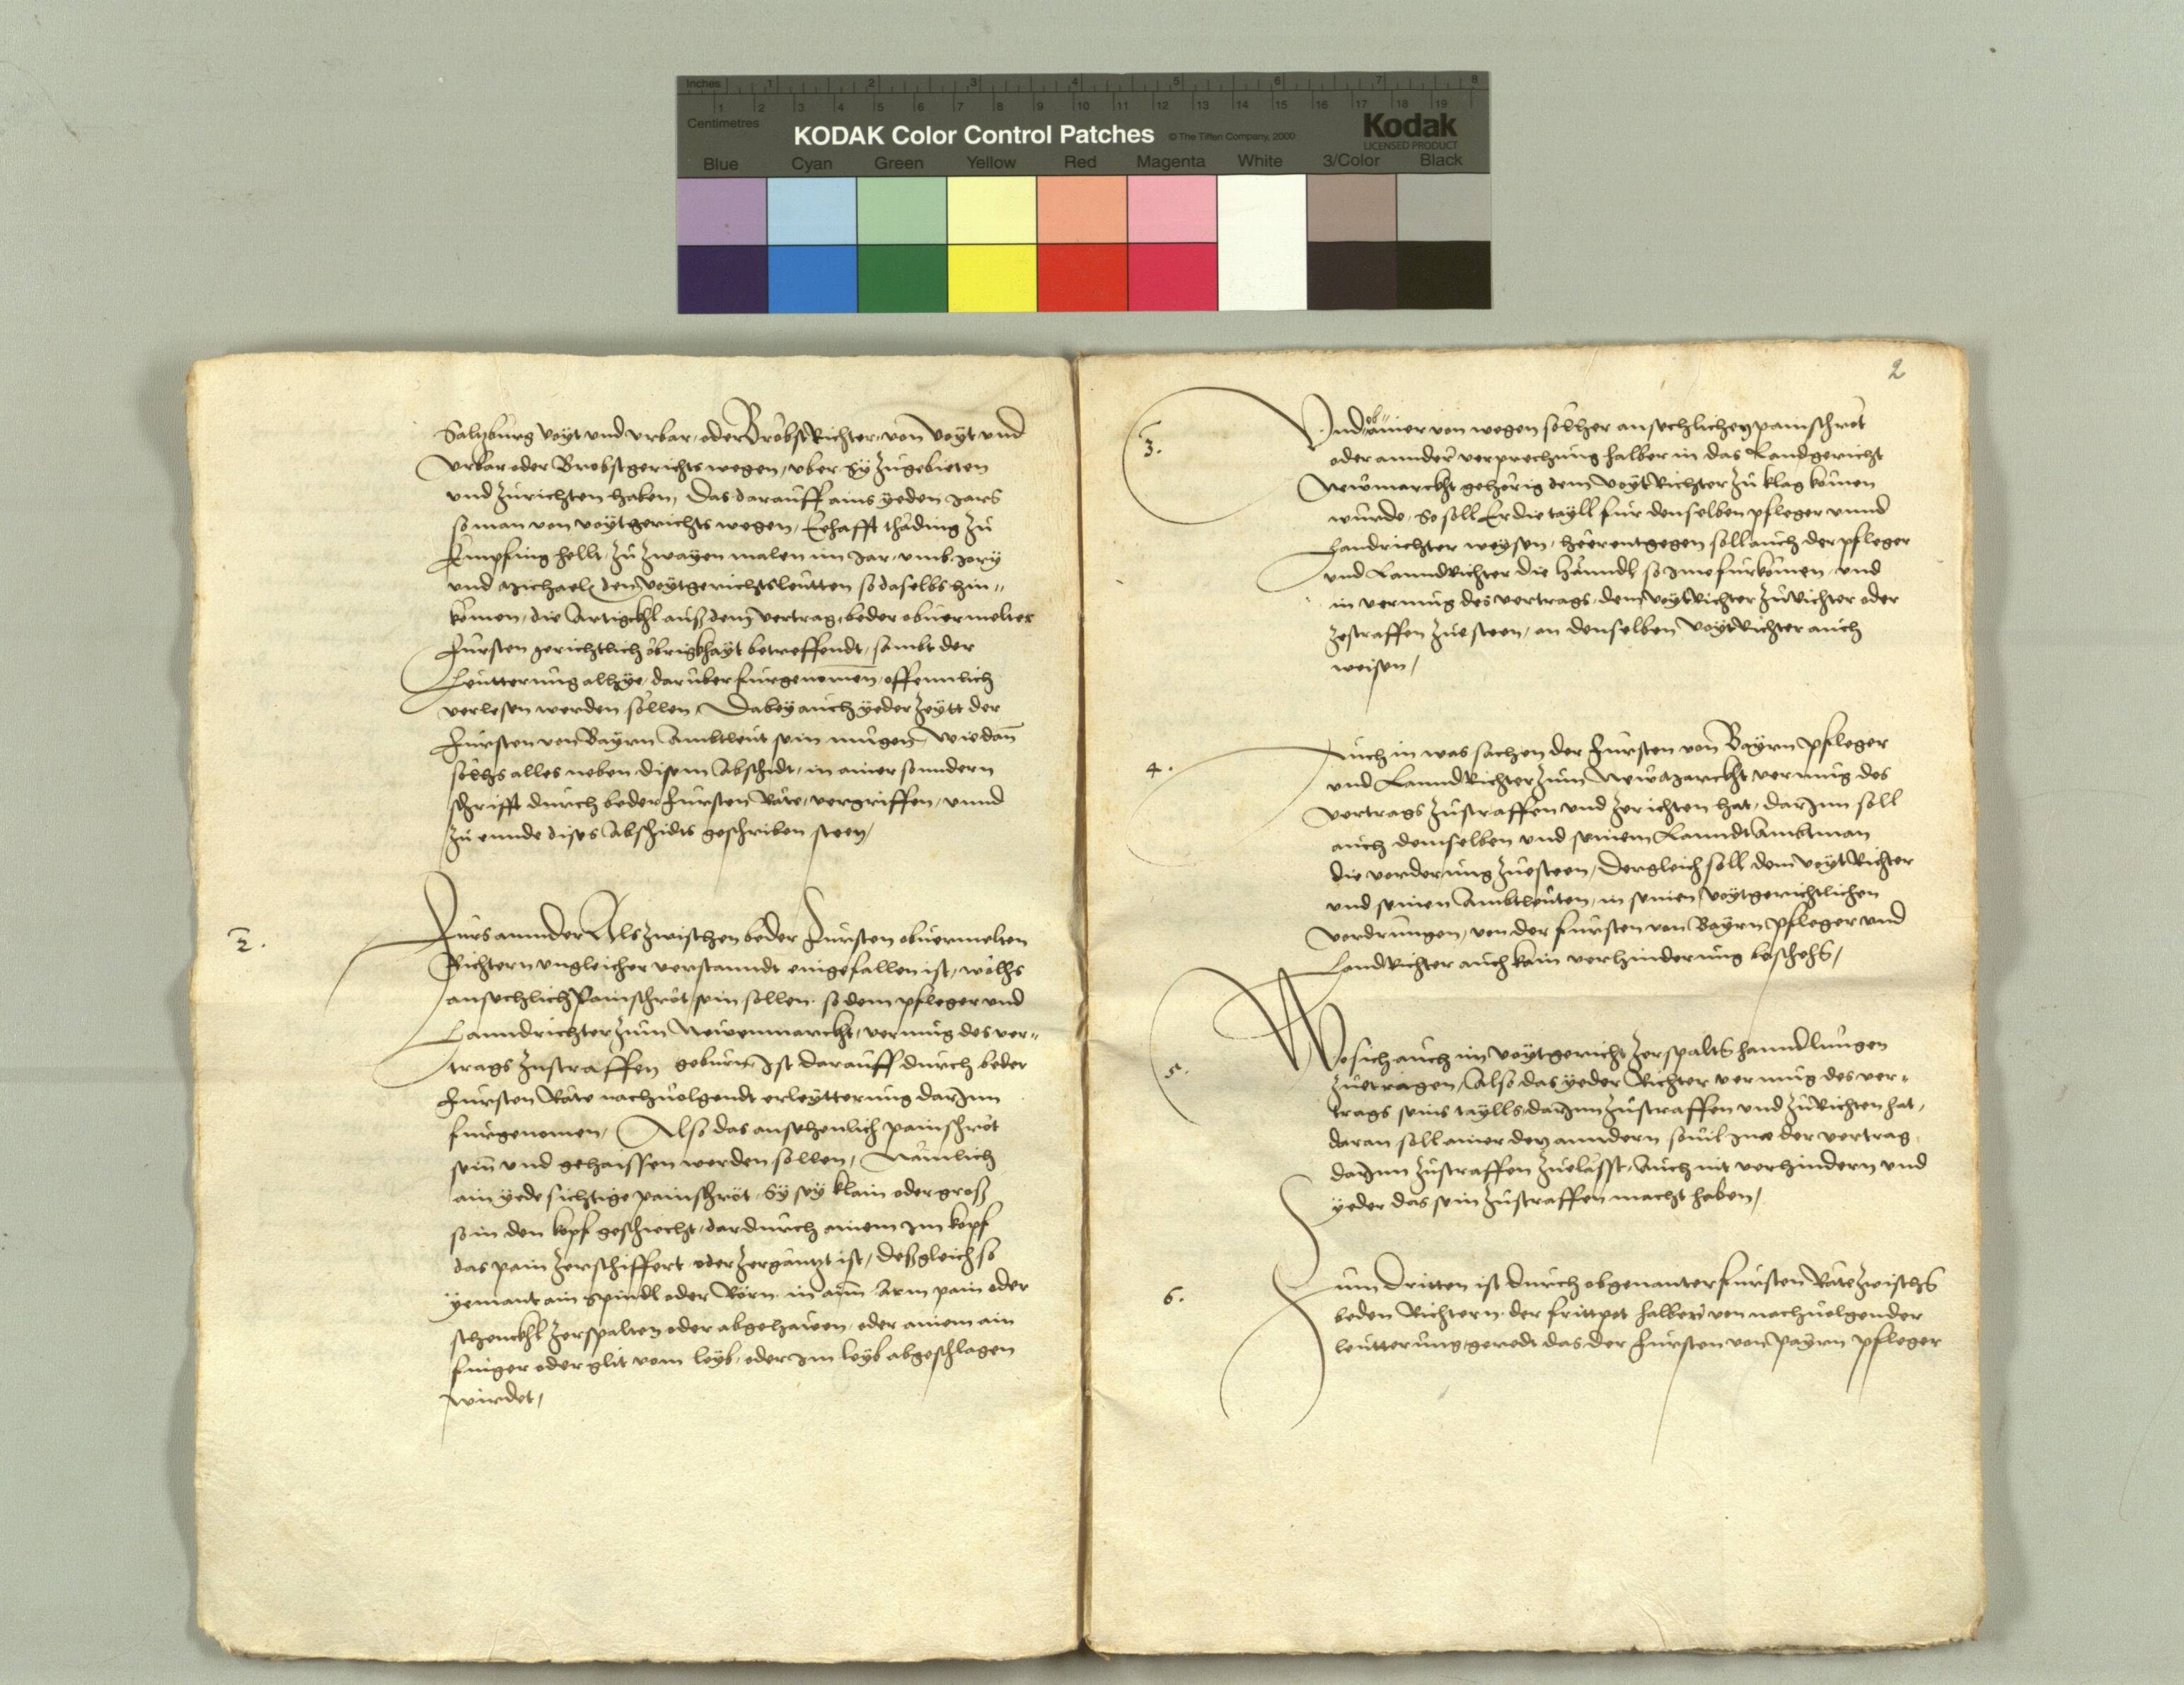 Inches 1 2 3 4 5 6 7 8
1 2 3 4 5 6 7 8 9 10 11 12 13 14 15 16 17 18 19
Centimetres
KODAK Color Control Patches © The Tiffen Company, 2000 Kodak
LICENSED PRODUCT
Blue Cyan Green Yellow Red Magenta White 3/Color Black
Saltzburg Voyt vnd vrbar oder BrobstRichter von Voyt vnd
vrbar oder Brobstgerichts wegen, vber Sy zugebieten
vnd zurichten haben, Das darauff ains yeden Jars
so man von voytgerichts wegen, Eehafft thading zu
Ämpfing hellt, zu zwayen malen im Jar, vmb Jory
vnd Michaelj den Voytgerichtsleutten so daselbs hin„
komen, die Artigckhl auß dem vertrag beder obuermelter
Fürsten gerichtlich obrigkhayt betreffendt, sambt der
Leutterung alhye darüber fürgenomen, offennlich
verlesen werden sollen, Dabey auch yeder Zeytt der
Fürsten von Bayrn Ambtleut sein mügen, Wie dan
solhs alles neben disem Abschidt, in ainer sonndern
schrifft durch beder Fürsten Räte, vergriffen, vnnd
zu ennde dises Abschidts geschriben steen,
2.
Fürs annder Als zwischen beder Fürsten obuermelten
Richtern vngleicher verstanndt eingefallen ist, welhs
ansechlich Painschröt sein sollen so dem pfleger vnd
Lanndrichter zum Newenmarckht, vermüg des ver„
trags zustraffen gebürn, Ist darauff durch beder
Fürsten Räte nachuolgendt erleytterung darInn
fürgenomen, Also das ansehenlich painschröt
sein vnd gehaissen werden sollen, Nämlich
ain yede sichtige painschröt, Sy sey klain oder groß
so in den kopf geschiecht, dardurch ainem Im kopf
das pain zerschiffert oder zergäntzt ist, deßgleich so
yemant ain Spindl oder Rörn in aim Arm pain oder
schenckhl zerspalten oder abgehawen, oder ainem ain
finger oder glit vom leyb, oder Im leyb abgeschlagen
wirdet,
2
3.
Vnd ob ainer von wegen solher ansechlichen painschröt
oder annder verprechung halber in das Landgericht
Newmarckht gehörig dem VoytRichter zu klag komen
wurde, So soll Er die tayll für denselben pfleger vnnd
Landrichter weysen, herentgegen soll auch der pfleger
vnd LanndRichter die Hänndl, so Ime fürkomen, vnd
in vermüg des vertrags, dem VoytRichter zuRichten oder
zestraffen zuesteen, an denselben VoytRichter auch
weisen,
4.
Auch in was sachen der Fürsten von Bayrn Pfleger
vnd LanndRichter zum NewMarckht vermüg des
vertrags zustraffen vnd zerichten hat, darInn soll
auch demselben vnd seinem LanndtAmbtman
die vorderung zuesteen, Dergleich soll dem VoytRichter
vnd seinen Ambtleuten, in seinen Voytgerichtlichen
Vordrungen, von der Fürsten von Bayrn Pfleger vnd
LandRichter auch kain verhinderung beschehn,
5.
Wo sich auch im Voytgericht zerspallts hanndlungen
zuetragen, Also das yeder Richter vermüg des ver„
trags seins taylls darInn zustraffen vnd zuRichten hat,
daran soll ainer den anndern souil Ine der vertrag
darInn zustraffen zuelässt, Auch nit verhindern vnd
yeder das sein zustraffen macht haben,
6.
Zum Dritten ist durch obgenanter Fürsten Räte zwischn
beden Richtern der frittpot halben von nachuolgender
leutterung geredt das der Fürsten von Payrn Pfleger